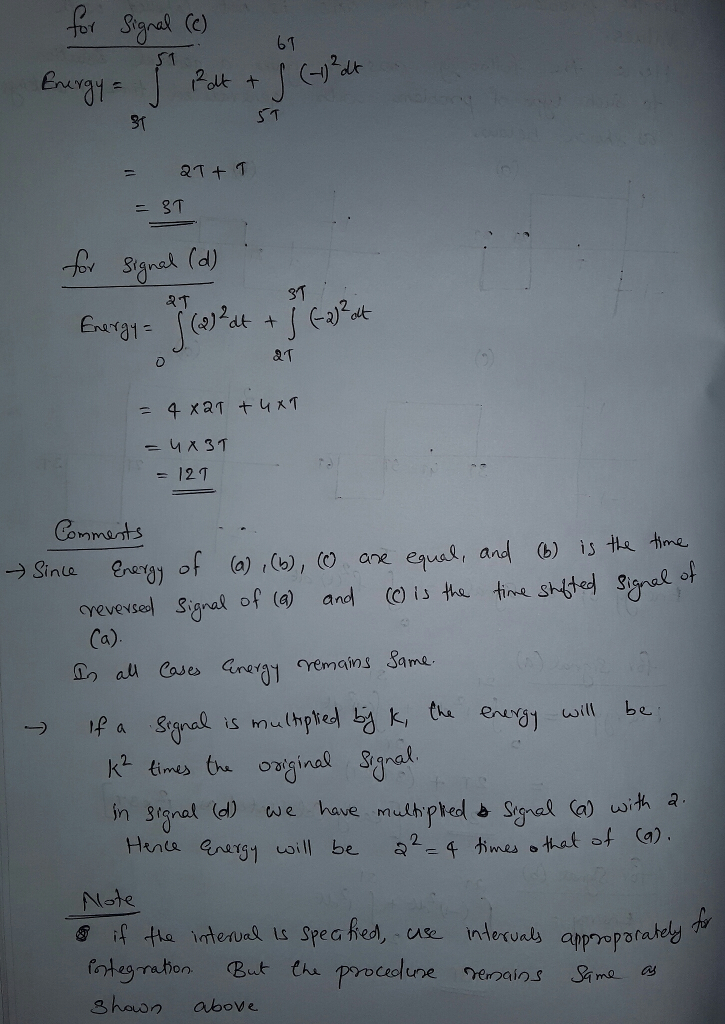 for Signal (c)
Energy = ∫_{3T}^{5T} 1² dt + ∫_{5T}^{6T} (-1)² dt
= 2T + T
= 3T
for Signal (d)
Energy = ∫_{0}^{2T} (2)² dt + ∫_{2T}^{3T} (-2)² dt
= 4 x 2T + 4 x T
= 4 x 3T
= 12T
Comments
→ Since Energy of (a), (b), (c) are equal, and (b) is the time
reversed Signal of (a) and (c) is the time shifted Signal of
(a).
In all Cases Energy remains Same.
→ If a Signal is multiplied by k, the energy will be
k² times the original Signal.
in signal (d) we have multiplied Signal (a) with 2.
Hence Energy will be 2² = 4 times that of (a).
Note
if the interval is Specified, use intervals appropriately for
integration But the procedure remains Same as
shown above